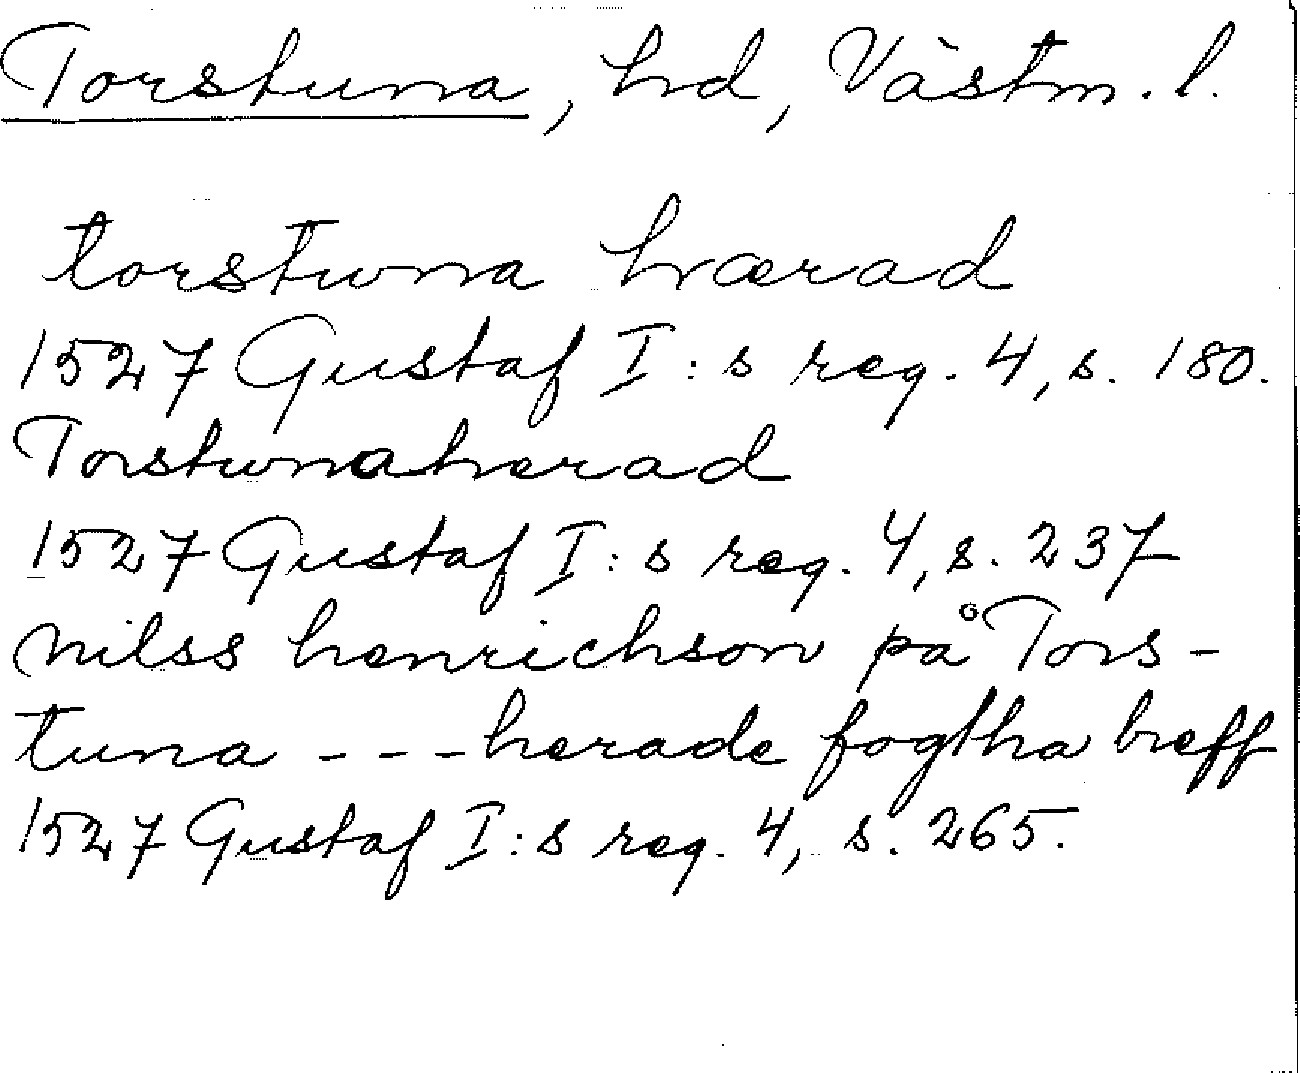 Torstuna, hd, Västm. l.
torstwna hærad
1527 Gustaf I:s reg. 4, s. 180.
Torstwnaherad
1527 Gustaf I:s reg. 4, s. 237
Nilss henrichson på Tors-
tuna --- herade fogtha breff
1527 Gustaf I:s reg. 4, s. 265.